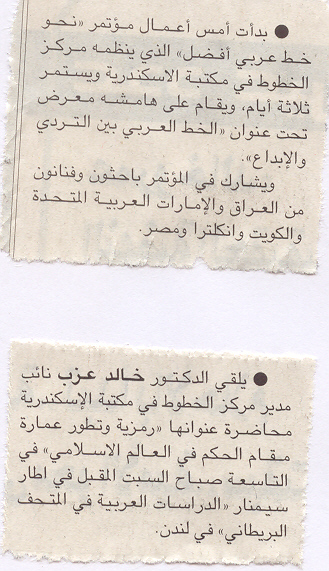 ● بدأت أمس أعمال مؤتمر «نحو
خط عربي أفضل» الذي ينظمه مركز
الخطوط في مكتبة الاسكندرية ويستمر
ثلاثة أيام، ويقام على هامشه معرض
تحت عنوان «الخط العربي بين التردي
والإبداع».
ويشارك في المؤتمر باحثون وفنانون
من العراق والإمارات العربية المتحدة
والكويت وانكلترا ومصر.
● يلقي الدكتور خالد عزب نائب
مدير مركز الخطوط في مكتبة الإسكندرية
محاضرة عنوانها «رمزية وتطور عمارة
مقام الحكم في العالم الاسلامي» في
التاسعة صباح السبت المقبل في اطار
سيمنار «الدراسات العربية في المتحف
البريطاني» في لندن.